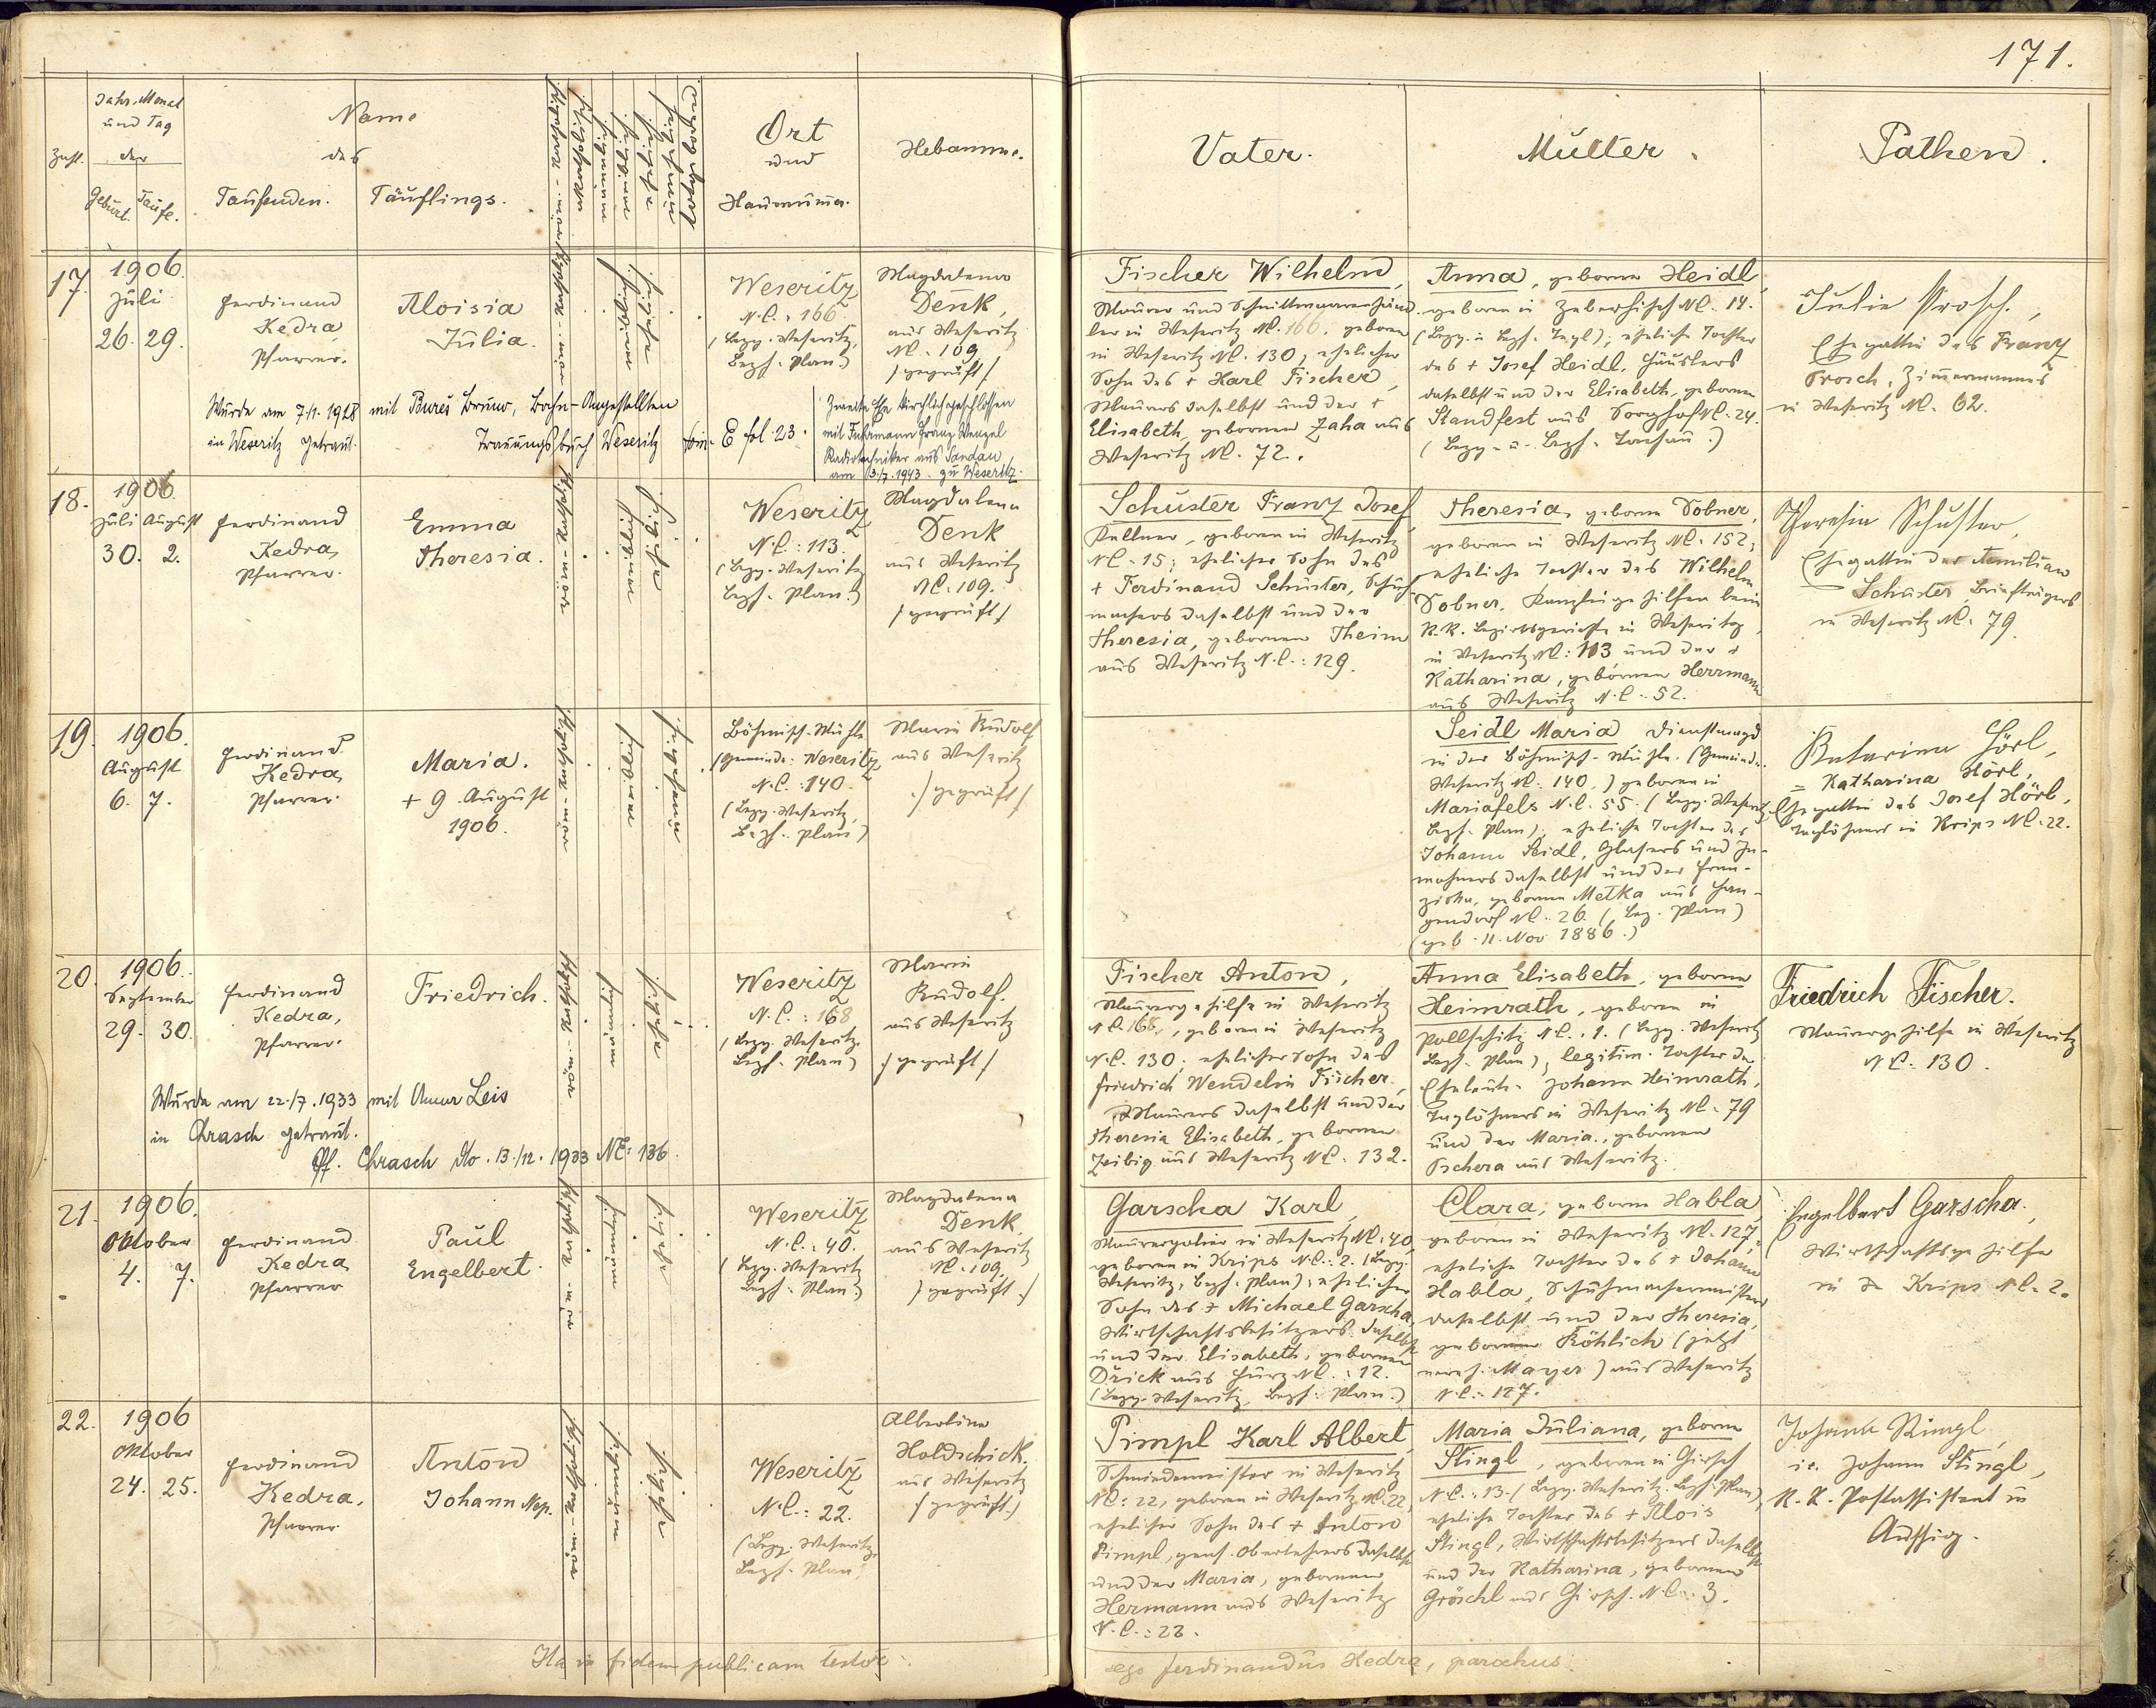 171.
Zahl.
Jahr, Monat
und Tag
der
Geburt. Taufe.
Name
des
Taufenden. Täuflings.
Ort
und
Hausnum̅er.
Hebamme.
Vater.
Mutter.
Pathen.
17.
1906.
Juli
26. 29.
Ferdinand
Kedra,
Pfarrer.
Aloisia
Julia.
Weseritz
N.C.: 166
(Bezg. Weseritz,
Bezh. Plan.)
Magdalena
Denk,
aus Weseritz
NC. 109
/geprüft/
Wurde am 7/1. 1928 mit Bureš Bruno, Bahn-Angestellten
in Weseritz getraut. Trauungsbuch Weseritz E fol. 23.
Zweite Ehe kirchlich geschlossen
mit Fuhrmann Franz Wenzel
Radiotechniker aus Sandau
am 13./7. 1943 zu Weseritz.
Fischer Wilhelm,
Maurer und Schnittwarenhänd-
ler in Weseritz NC. 166, geboren
in Weseritz NC. 130, ehelicher
Sohn des + Karl Fischer,
Maurers daselbst und der +
Elisabeth, gebornen Zaha aus
Weseritz NC. 72.
Anna, geborne Heidl
geboren in NC. 14.
eheliche Tochter
des + Josef Heidl, Häuslers
daselbst und der Elisabeth, gebornen
Standfest aus Sorghof NC. 24.
(Bezg. u. Bezh. Tachau.)
Julie Prosch.,
Ehegattin des Franz
Prosch, Zim̅ermannes
in Weseritz NC. 62.
18.
1906.
Juli August
30. 2.
Ferdinand
Kedra,
Pfarrer.
Emma
Theresia.
Weseritz
N.C.: 113.
(Bezg. Weseritz
Bezh. Plan.)
Magdalena
Denk
aus Weseritz
NC. 109.
/geprüft/
Schuster Franz Josef,
Kellner, geboren in Weseritz
NC. 15; ehelicher Sohn des
+ Ferdinand Schuster, Schuh-
machers daselbst und der
Theresia, gebornen Theim
aus Weseritz N.C.: 129.
Theresia, geborne Sobner,
geboren in Weseritz NC. 152;
eheliche Tochter des Wilhelm
Sobner, Kanzleigehilfen beim
K.K. Bezirksgerichte in Weseritz,
in Weseritz NC: 113 und der +
Katharina, gebornen Herrmann
aus Weseritz N.C. 52.
Theresia Schuster,
Ehegattin des Aemilian
Schuster, Briefträgers
in Weseritz NC. 79.
19.
1906.
August
6. 7.
Ferdinand
Kedra,
Pfarrer.
Maria.
+ 9. August
1906.
Böhmisch-Mühle
(Gemeinde: Weseritz
N.C.: 140.
(Bezg. Weseritz,
Bezh. Plan)
Marie Rudolf
aus Weseritz
/geprüft/
Seidl Maria Dienstmagd
in der Böhmisch-Mühle. (Gemeinde.
Weseritz NC. 140.) geboren in
Mariafels N.C. 55. (Bezg. Weseritz,
Bezh. Plan), eheliche Tochter des
Johann Seidl, Glasers und In-
wohners daselbst und der Fran-
ziska, gebornen Metka aus Han-
gendorf NC. 26. (Bez. Plan)
(geb. 11. Nov. 1886.)
Katarina Hörl,
= Katharina Hörl,
Ehegattin des Josef Hörl,
Taglöhners in Krips NC. 22.
20.
1906.
September
29. 30.
Ferdinand
Kedra,
Pfarrer.
Friedrich.
Weseritz
N.C.: 168
(Bezg. Weseritz.
Bezh. Plan)
Marie
Rudolf.
aus Weseritz
/geprüft/
Wurde am 22./7. 1933 mit Anna Leis
in Chrasch getraut.
Pf. Chrasch dto. 13./12. 1933 NE: 136.
Fischer Anton,
Maurergehilfe in Weseritz
NC. 168, geboren in Weseritz
N.C. 130; ehelicher Sohn des
Friedrich Wendelin Fischer,
Maurers daselbst und der
Theresia Elisabeth, gebornen
Zeibig aus Weseritz NC. 132.
Anna Elisabeth, geborne
Heimrath, geboren in
Pollschitz NC. 1. (Bezg. Weseritz
Bezh. Plan), legitim. Tochter der
Eheleute Johann Heimrath,
Taglöhners in Weseritz NC. 79
und der Maria, gebornen
Pschera aus Weseritz.
Friedrich Fischer.
Maurergehilfe in Weseritz
NC. 130.
21.
1906.
Oktober
4. 7.
Ferdinand
Kedra,
Pfarrer
Paul
Engelbert.
Weseritz
N.C.: 40.
(Bezg. Weseritz
Bezh. Plan.)
Magdalena
Denk
aus Weseritz
NC. 109
/geprüft/
Garscha Karl,
Maurerpolier in Weseritz NC. 40,
geboren in Krips N.C.: 2. (Bezg.
Weseritz, Bezh. Plan); ehelicher
Sohn des + Michael Garscha,
Wirtschaftsbesitzers daselbst
und der Elisabeth, gebornen
Drick aus Hurz NC.: 12.
(Bezg. Weseritz, Bezh. Plan.)
Clara, geborne Habla
geboren in Weseritz NC. 127,
eheliche Tochter des + Johann
Habla, Schuhmachermeisters
daselbst und der Theresia,
gebornen Köhlich (jetzt
Mayer) aus Weseritz
N.C.: 127.
Engelbert Garscha.
Wirtschaftsgehilfe
in Krips NC. 2.
22.
1906
Oktober
24. 25.
Ferdinand
Kedra,
Pfarrer
Anton
Johann Nep.
Weseritz
N.C.: 22.
(Bezg. Weseritz,
Bezh. Plan)
Albertine
Holdschick.
aus Weseritz
/geprüft./
Pimpl Karl Albert,
Schmiedemeister in Weseritz
NC: 22, geboren in Weseritz NC. 22,
ehelicher Sohn des + Anton
Pimpl, gens. Oberlehrers daselbst
und der Maria, gebornen
Hermann aus Weseritz
N.C.: 23.
Maria Juliana, geborne
Stingl, geboren in Girsch
N.C.: 13. (Bezg. Weseritz. Bezh. Plan)
eheliche Tochter des + Alois
Stingl, Wirtschaftsbesitzers daselbst
und der Katharina, gebornen
Gröschl aus Girsch. N.C. 3.
Johann Stingl,
i.e. Johann Stingl,
K.K. Postassistent in
Aussig.
Ita in fidem publicam testor
ego Ferdinandus Kedra, parochus.